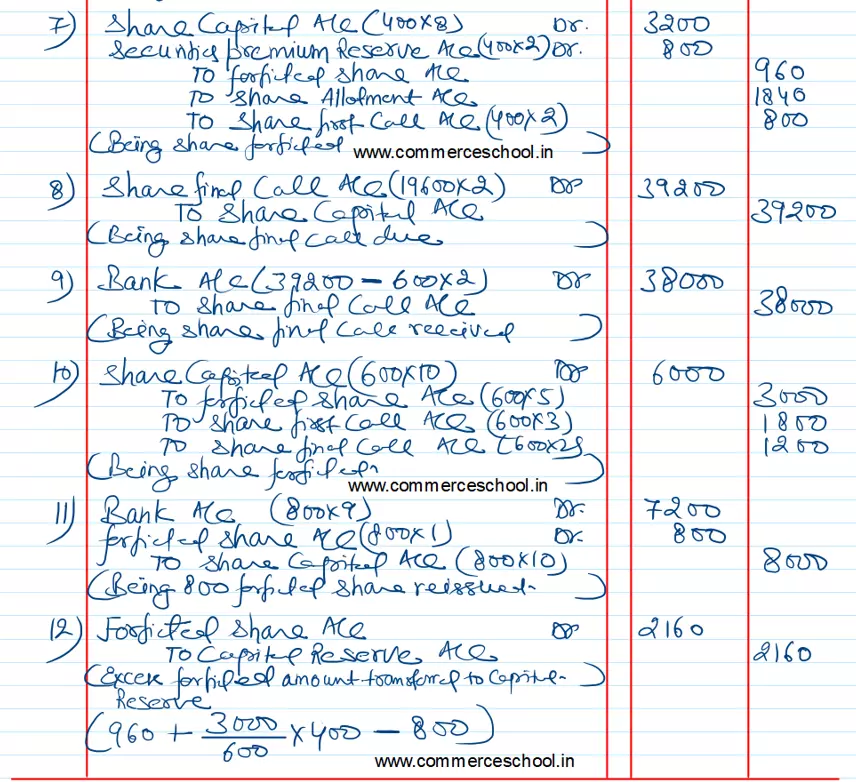 7) Share Capital A/c (400×8) Dr. 3200
Securities premium Reserve A/c (400×2) Dr. 800
To forfited share A/c 960
To share Allotment A/c 1840
To share first Call A/c (400×2) 800
(Being share forfited) www.commerceschool.in
8) Share final Call A/c (19600×2) Dr 39200
To Share Capital A/c 39200
(Being share final call due)
9) Bank A/c (39200 - 600×2) Dr 38000
To share final Call A/c 38000
(Being share final call received)
10) Share Capital A/c (600×10) Dr 6000
To forfited share A/c (600×5) 3000
To share first Call A/c (600×3) 1800
To share final Call A/c (600×2) 1200
(Being share forfited)
www.commerceschool.in
11) Bank A/c (800×9) Dr. 7200
forfited share A/c (800×1) Dr. 800
To share Capital A/c (800×10) 8000
(Being 800 forfited share reissued)
12) Forfited share A/c Dr 2160
To Capital Reserve A/c 2160
(Excess forfited amount transferred to Capital
Reserve)
(960 + 3000/600 × 400 - 800)
www.commerceschool.in